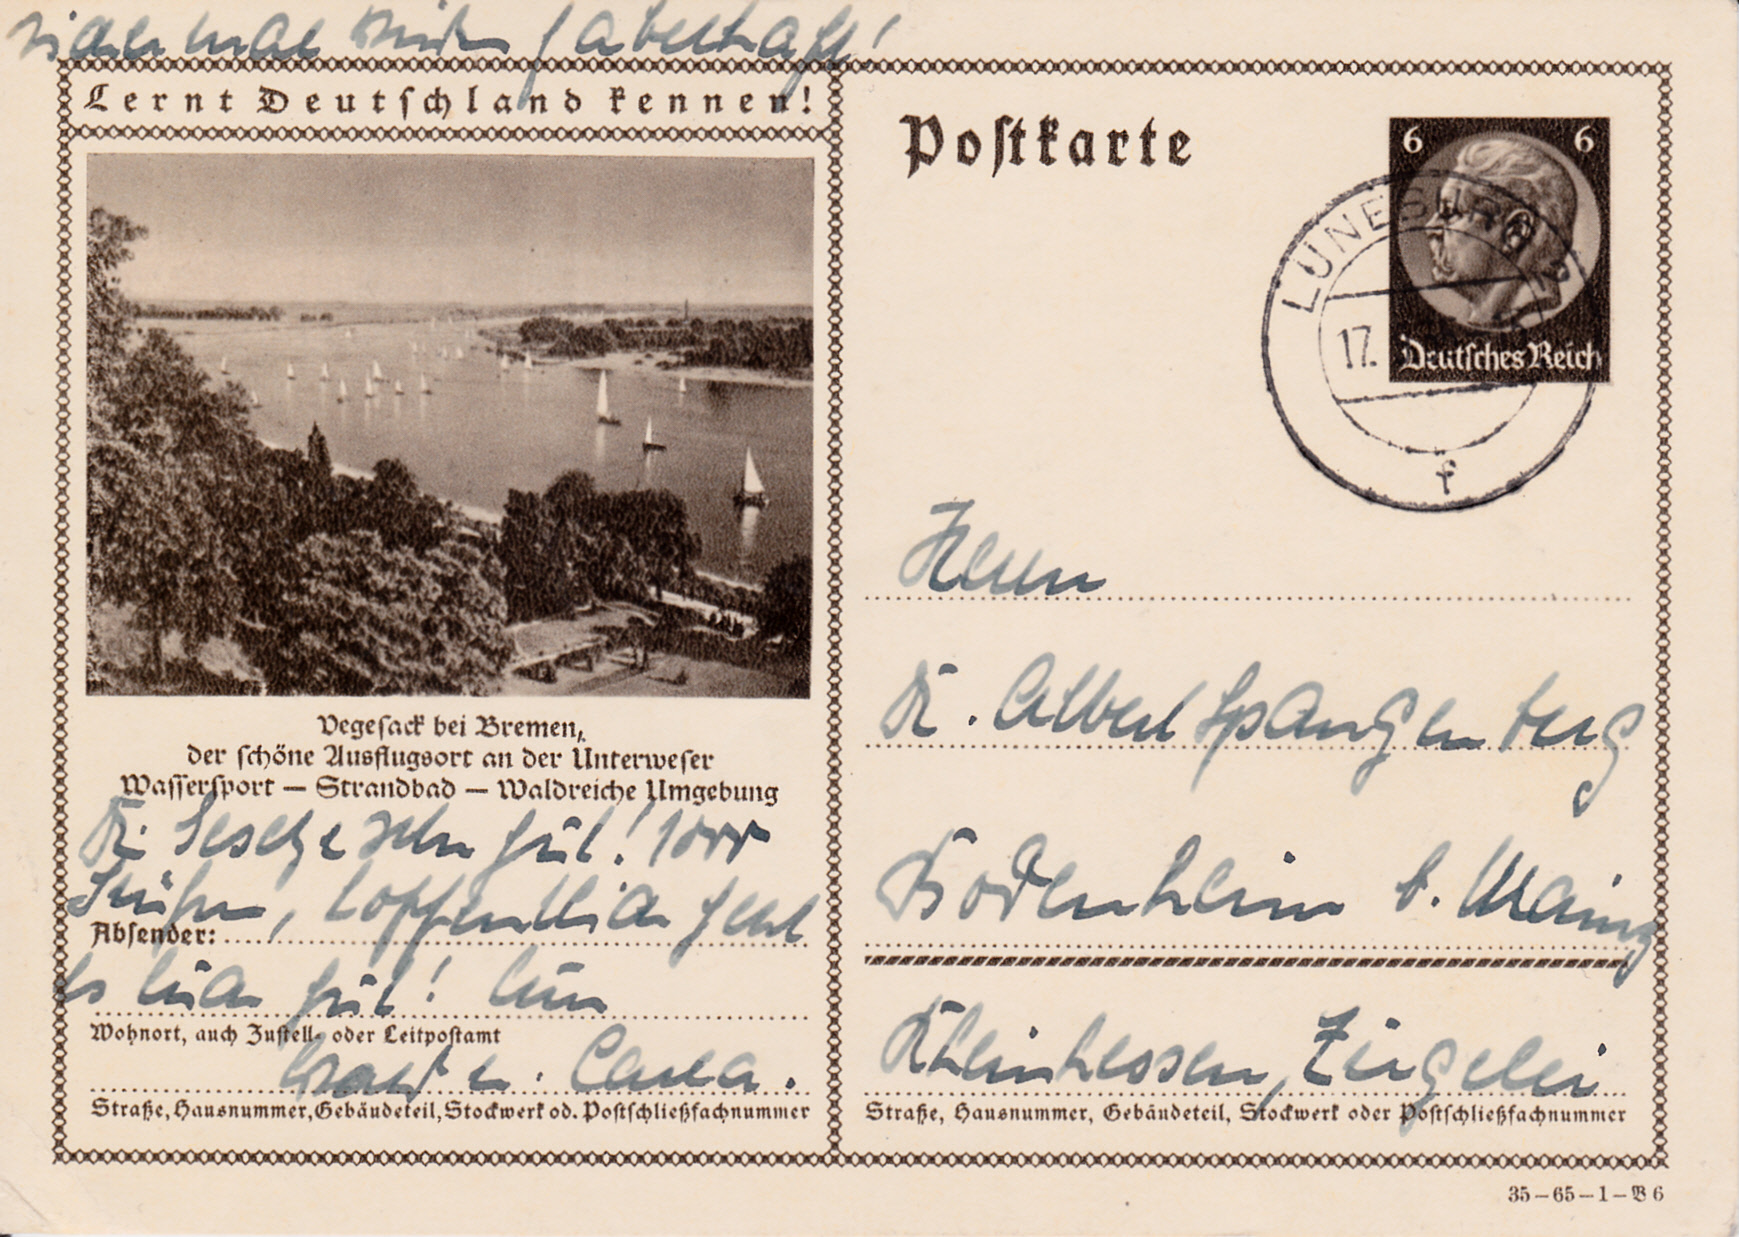 fabelhaft!
Lernt Deutschland kennen!
Postkarte
6 6
LÜNEBURG
17.
Deutsches Reich
f
Vegesack bei Bremen,
der schöne Ausflugsort an der Unterweser
Wassersport — Strandbad — Waldreiche Umgebung
gut! 1000
hoffentlich geht
Absender:
es gut!
Wohnort, auch Zustell- oder Leitpostamt
u. Carla.
Straße, Hausnummer, Gebäudeteil, Stockwerk od. Postschließfachnummer
Herrn
Dr. Albert Spangenberg
Bodenheim b. Mainz
Rheinhessen, Ziegelei
Straße, Hausnummer, Gebäudeteil, Stockwerk oder Postschließfachnummer
35–65–1–B 6